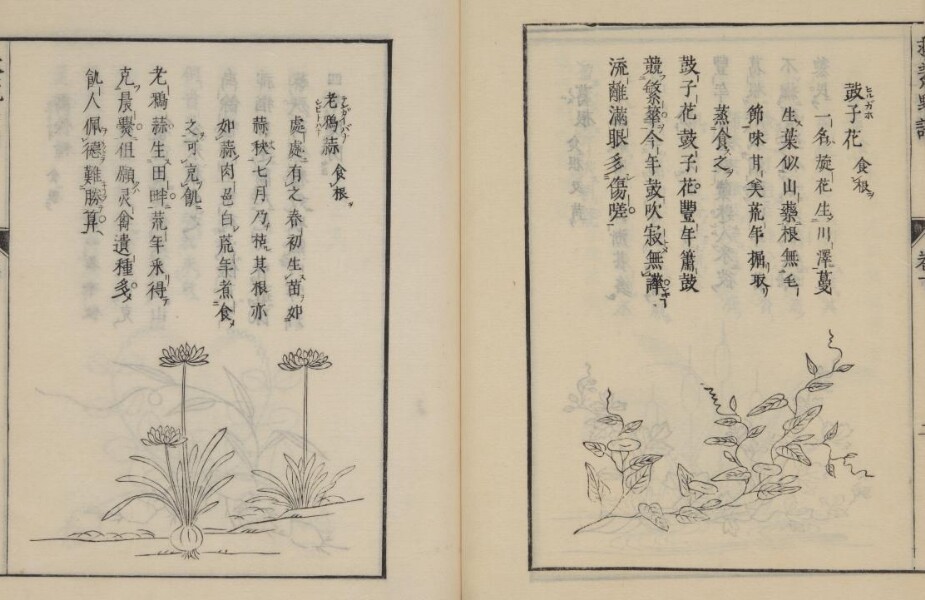 鼓子花 食根
ヒルガホ
一名旋花生川澤蔓
生葉似山藥根無毛
節味甘美荒年掘取
蒸食之
鼓子花鼓子花豐年簫鼓
競繁華今年鼓吹寂無譁
流離滿眼多傷嗟
老鴉蒜 食根
處處有之春初生苗如
蒜秋七月乃枯其根亦
如蒜肉色白荒年煮食
之可充飢
老鴉蒜生田畔荒年采得
充晨爨但願灵禽遺種多
飢人佩德難勝算